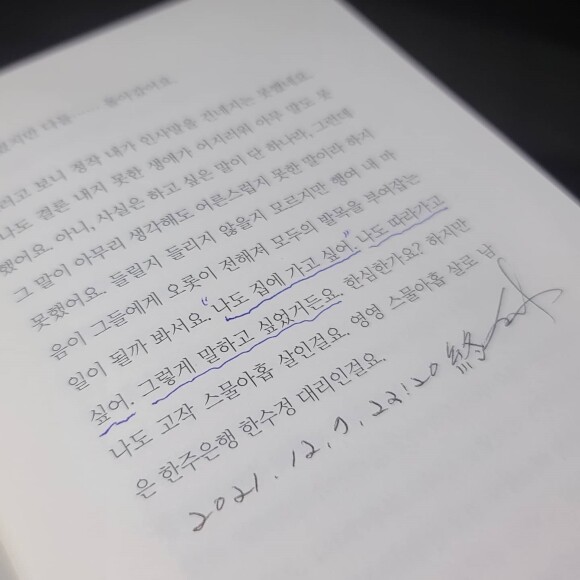 돌아갔어요.
고 보니 정작 내가 인사말을 건네지는 못했네요.
나도 결론 내지 못한 생애가 어지러워 아무 말도 못
했어요. 아니, 사실은 하고 싶은 말이 단 하나라, 그런데
그 말이 아무리 생각해도 어른스럽지 못한 말이라 하지
못했어요. 들릴지 들리지 않을지 모르지만 행여 내 마
음이 그들에게 오롯이 전해져 모두의 발목을 부여잡는
일이 될까 봐서요. “나도 집에 가고 싶어.” 나도 따라가고
싶어. 그렇게 말하고 싶었거든요. 한심한가요? 하지만
나도 고작 스물아홉 살인걸요. 영영 스물아홉 살로 남
은 한주은행 한수정 대리인걸요.
2021. 12. 9. 22:20 終